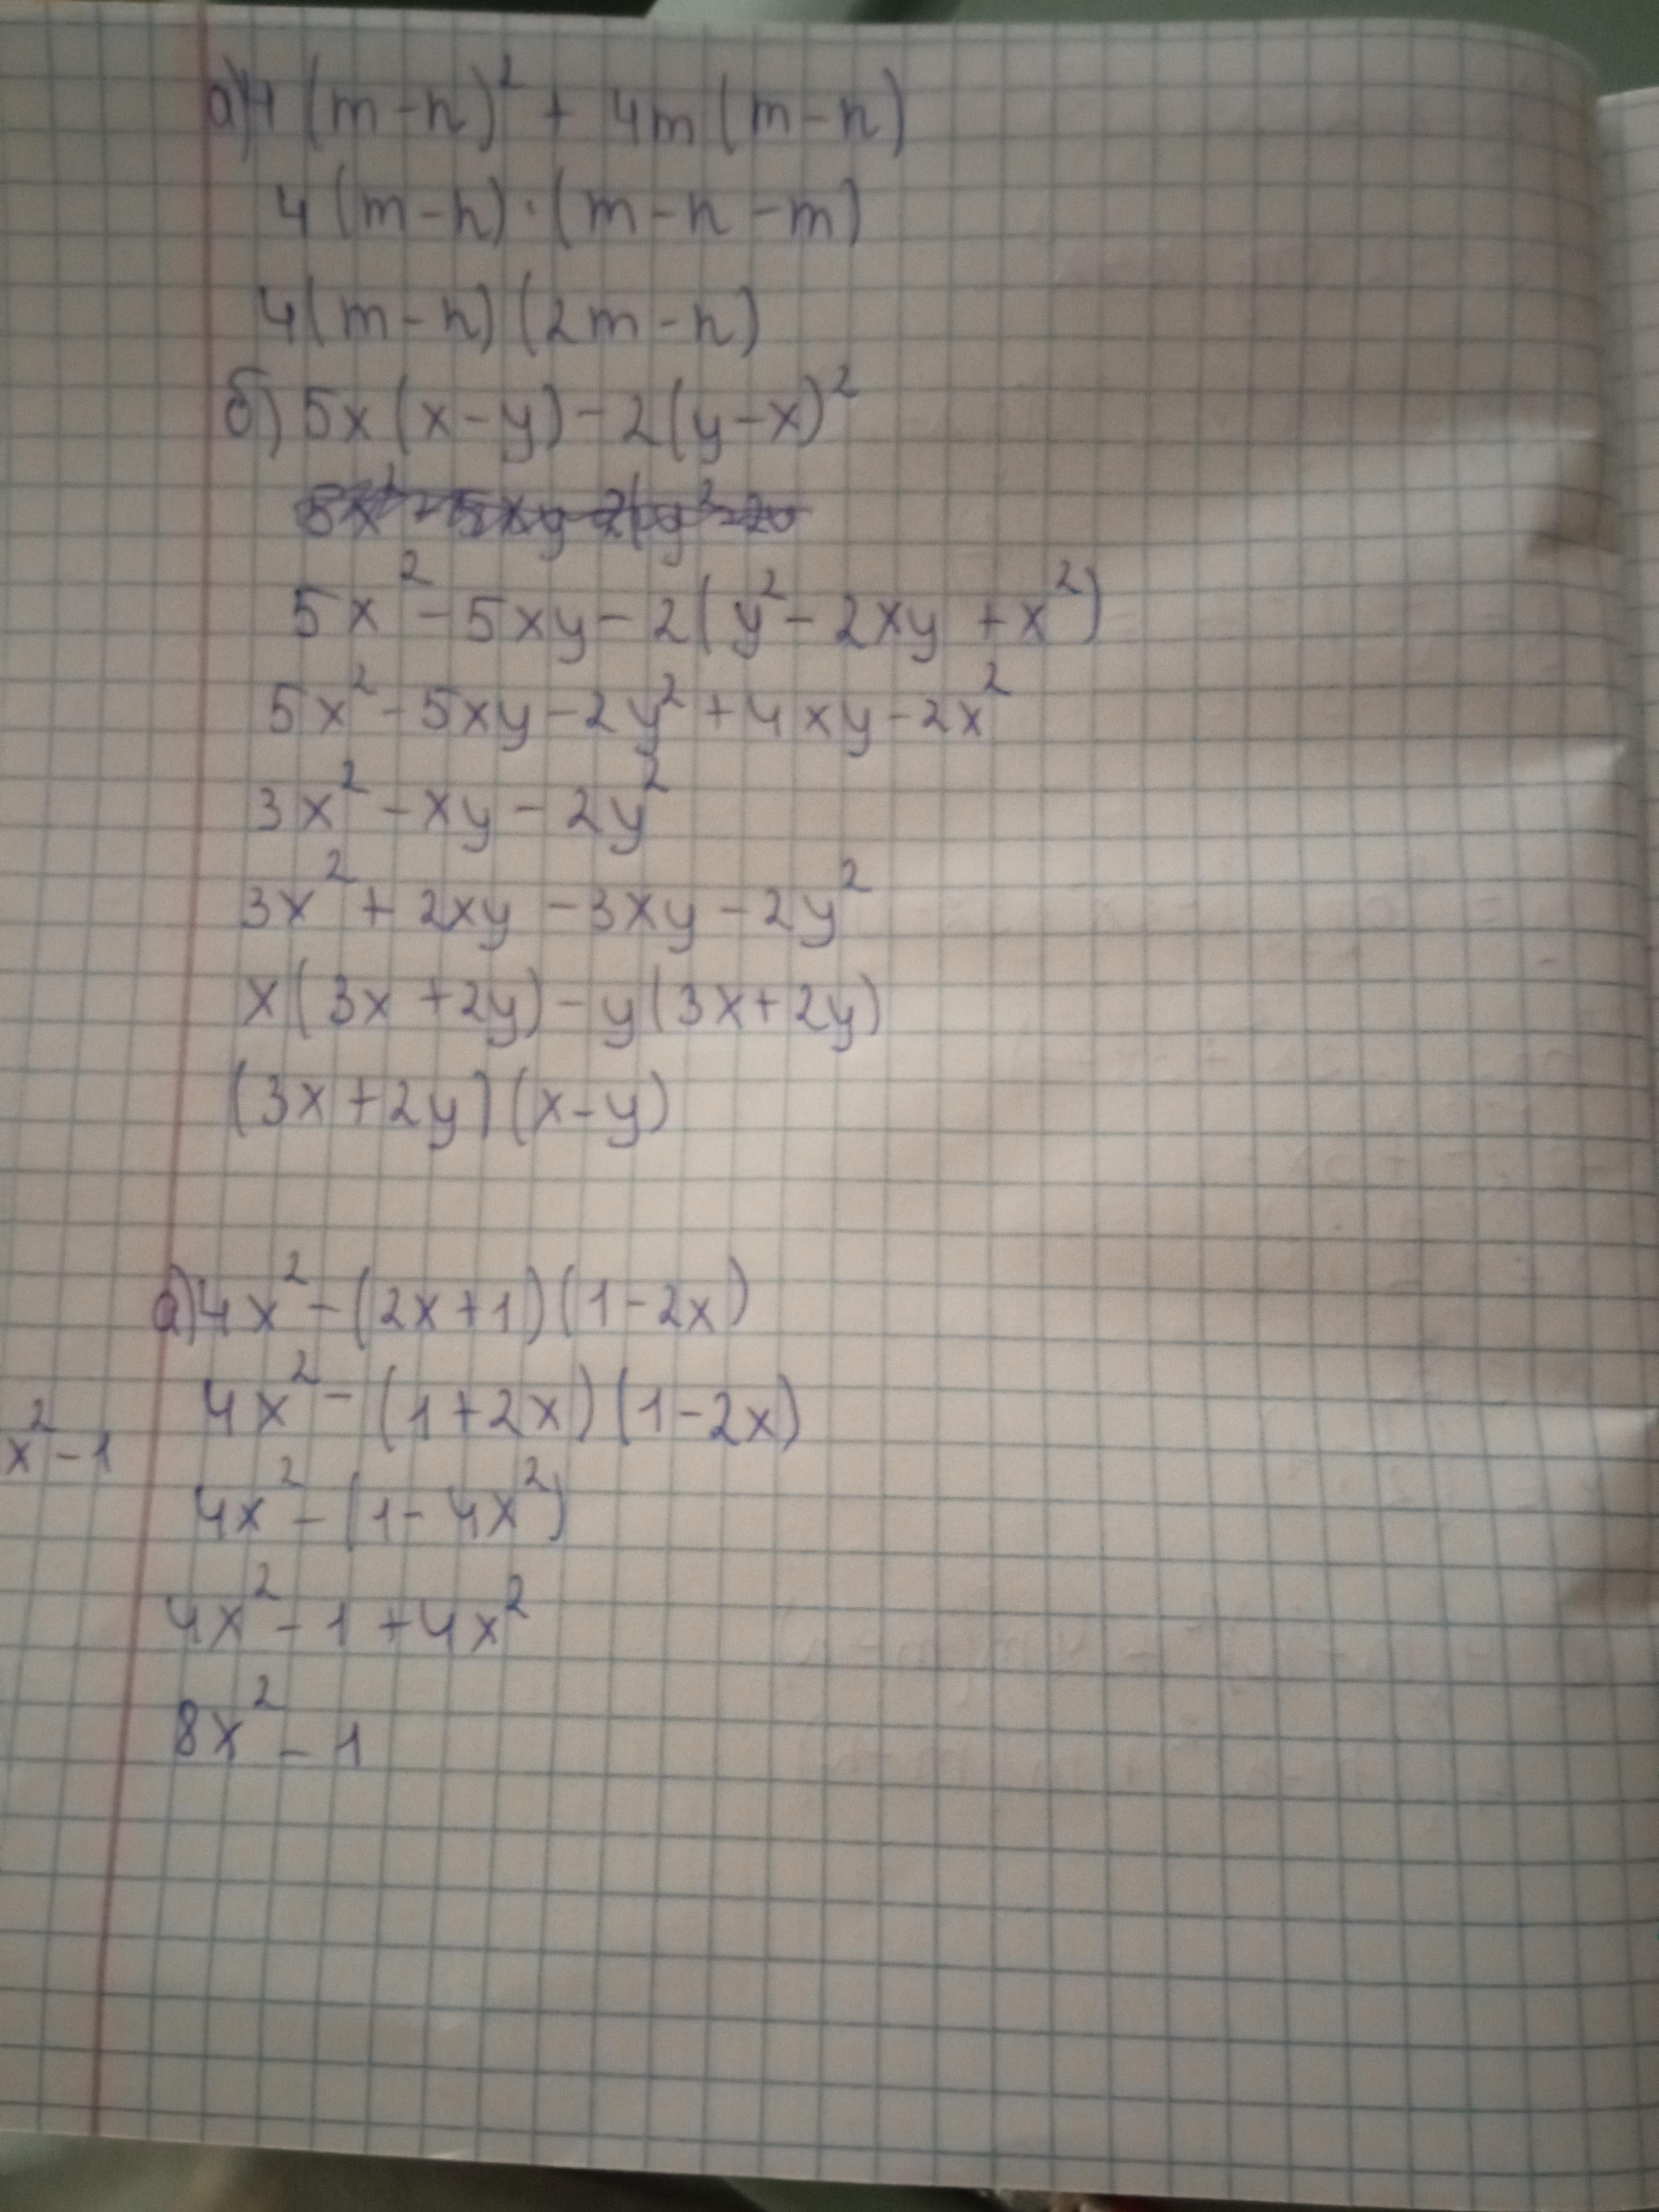 а) 4(m-n)² + 4m(m-n)
4(m-n)·(m-n-m)
4(m-n)(2m-n)
б) 5x(x-y)-2(y-x)²
5x²-5xy-2(y²-2xy+x²)
5x²-5xy-2y²+4xy-2x²
3x²-xy-2y²
3x²+2xy-3xy-2y²
x(3x+2y)-y(3x+2y)
(3x+2y)(x-y)
а) 4x²-(2x+1)(1-2x)
4x²-(1+2x)(1-2x)
x²-1
4x²-(1-4x²)
4x²-1+4x²
8x²-1